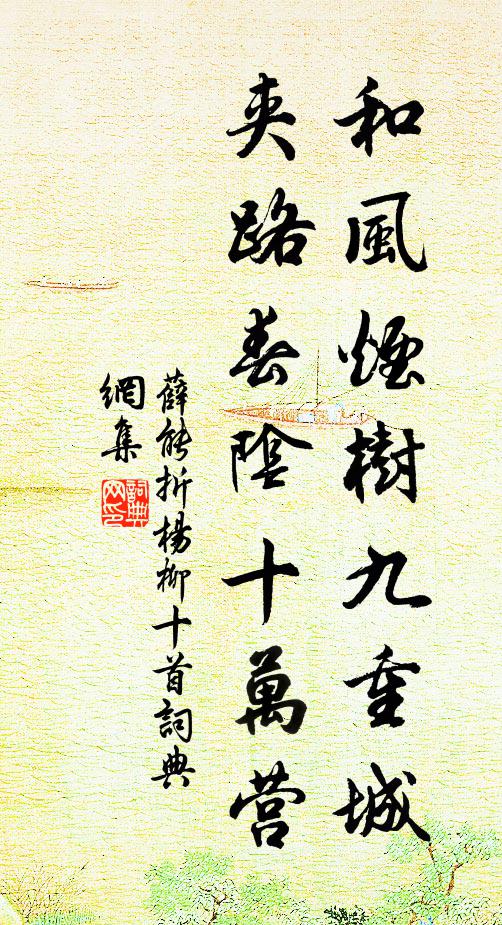 和風煙樹九重城
夾路春陰十萬营
薛能折楊柳十首詞典
網集
詞典
网印